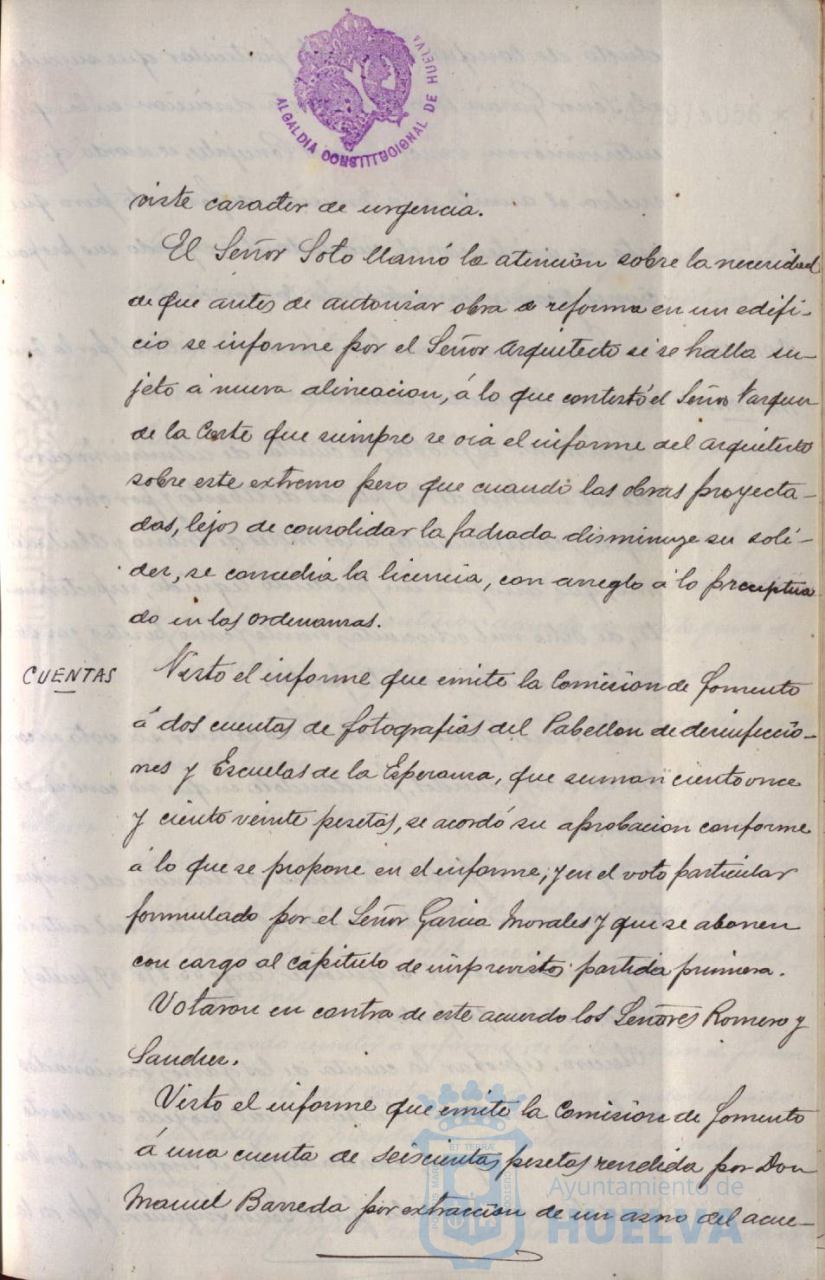 ALCALDIA CONSTITUCIONAL DE HUELVA
viste caracter de urgencia.
El Señor Soto llamó la atencion sobre la necesidad
de que antes de autorizar obra o reforma en un edifi-
cio se informe por el Señor Arquitecto si se halla su-
jeto á nueva alineacion, á lo que contestó el Señor Vazquez
de la Corte que siempre se oia el informe del arquitecto
sobre este extremo pero que cuando las obras proyecta-
das, lejos de consolidar la fachada disminuye su soli-
dez, se concedia la licencia, con arreglo á lo preceptua
do en las ordenanzas.
CUENTAS
Visto el informe que emite la Comision de fomento
á dos cuentas de fotografias del Pabellon de desinfeccio-
nes y Escuelas de la Esperanza, que suman ciento once
y ciento veinte pesetas, se acordó su aprobacion conforme
á lo que se propone en el informe, y en el voto particular
formulado por el Señor Garcia Morales y que se abonen
con cargo al capitulo de imprevistos partida primera.
Votaron en contra de este acuerdo los Señores Romero y
Sanchez.
Visto el informe que emite la Comision de fomento
á una cuenta de seiscientas pesetas rendida por Don
Manuel Barreda por extraccion de un asno del acue-
Ayuntamiento de
HUELVA